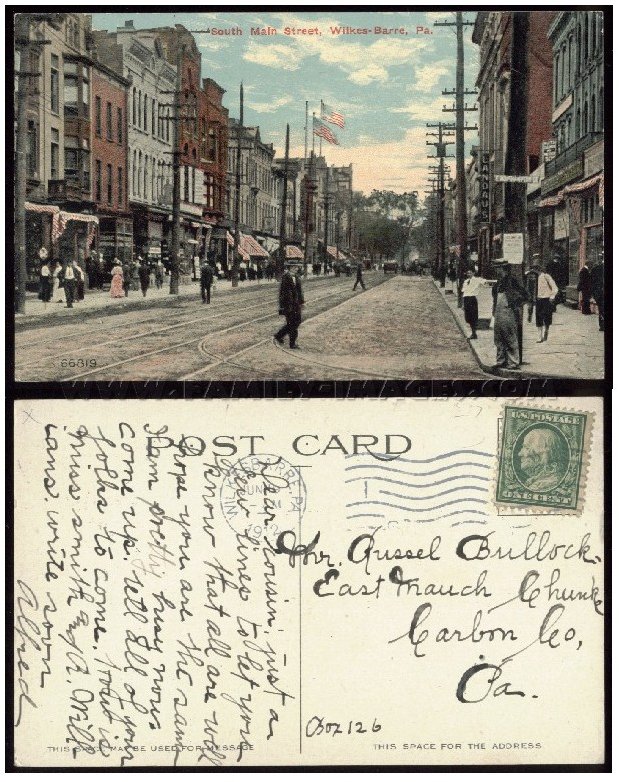 South Main Street, Wilkes-Barre, Pa.
66819
WWW.FAMILY-IMAGES.COM
POST CARD
WILKES-BARRE, PA.
JUN
1912
U.S. POSTAGE
ONE CENT
Dear Cousin, just a
few lines to let you
know that all are well
hope you are the same
I am pretty busy now
come up. tell all of your
folks to come.
Miss Smith and R. Will-
iams. write soon
Alfred
Mr. Russel Bullock.
East Mauch Chunk
Carbon Co,
Pa.
Box 126
THIS SPACE MAY BE USED FOR MESSAGE
THIS SPACE FOR THE ADDRESS